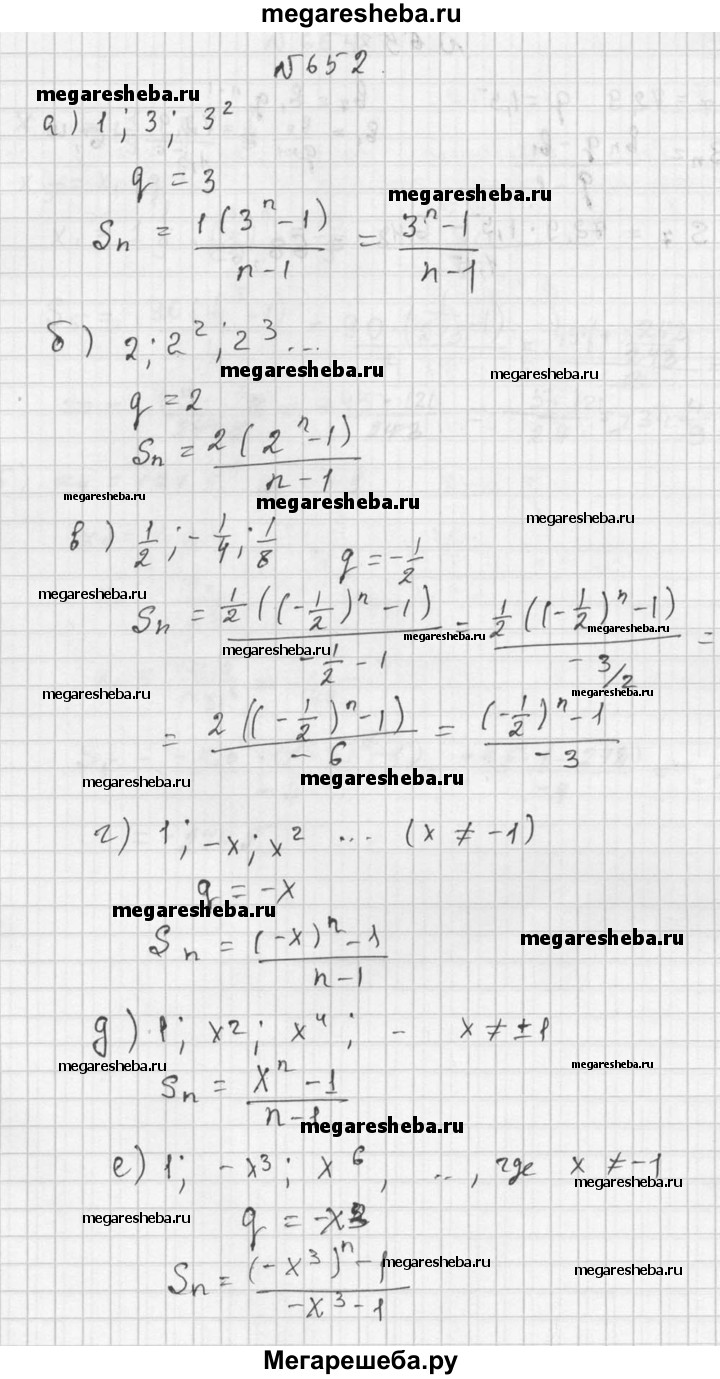 megaresheba.ru
№652.
megaresheba.ru
а) 1; 3; 3²
q = 3
megaresheba.ru
Sn = 1(3ⁿ-1)/(n-1) = (3ⁿ-1)/(n-1)
б) 2; 2²; 2³...
megaresheba.ru megaresheba.ru
q = 2
Sn = 2(2ⁿ-1)/(n-1)
megaresheba.ru megaresheba.ru megaresheba.ru
в) 1/2; -1/4; 1/8 q = -1/2
megaresheba.ru megaresheba.ru
Sn = 1/2((-1/2)ⁿ-1)/(-1/2-1) = 1/2((-1/2)ⁿ-1)/(-3/2) =
megaresheba.ru megaresheba.ru
megaresheba.ru megaresheba.ru
= 2((-1/2)ⁿ-1)/(-6) = ((-1/2)ⁿ-1)/(-3)
megaresheba.ru megaresheba.ru
г) 1; -x; x² ... (x ≠ -1)
q = -x
megaresheba.ru megaresheba.ru
Sn = ((-x)ⁿ-1)/(n-1)
д) 1; x²; x⁴; - x ≠ ±1
megaresheba.ru megaresheba.ru
Sn = (xⁿ-1)/(n-1)
megaresheba.ru
е) 1; -x³; x⁶, .., где x ≠ -1
megaresheba.ru
q = -x3
megaresheba.ru
Sn = ((-x³)ⁿ-1)/(-x³-1)
megaresheba.ru megaresheba.ru
Мегарешеба.ру